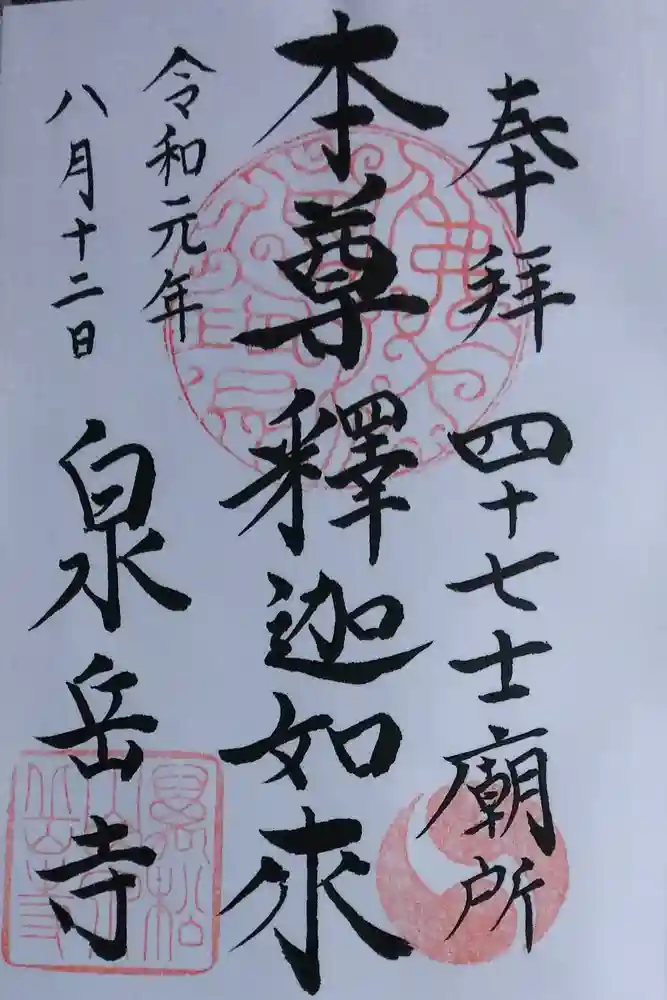 奉拝 四十七士廟所
本尊釋迦如来
令和元年
八月十二日
泉岳寺